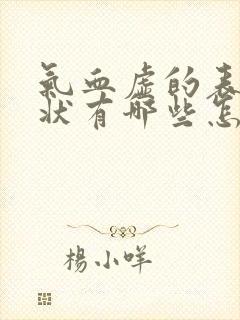 氣血虛的表
狀有哪些怎
楊小咩